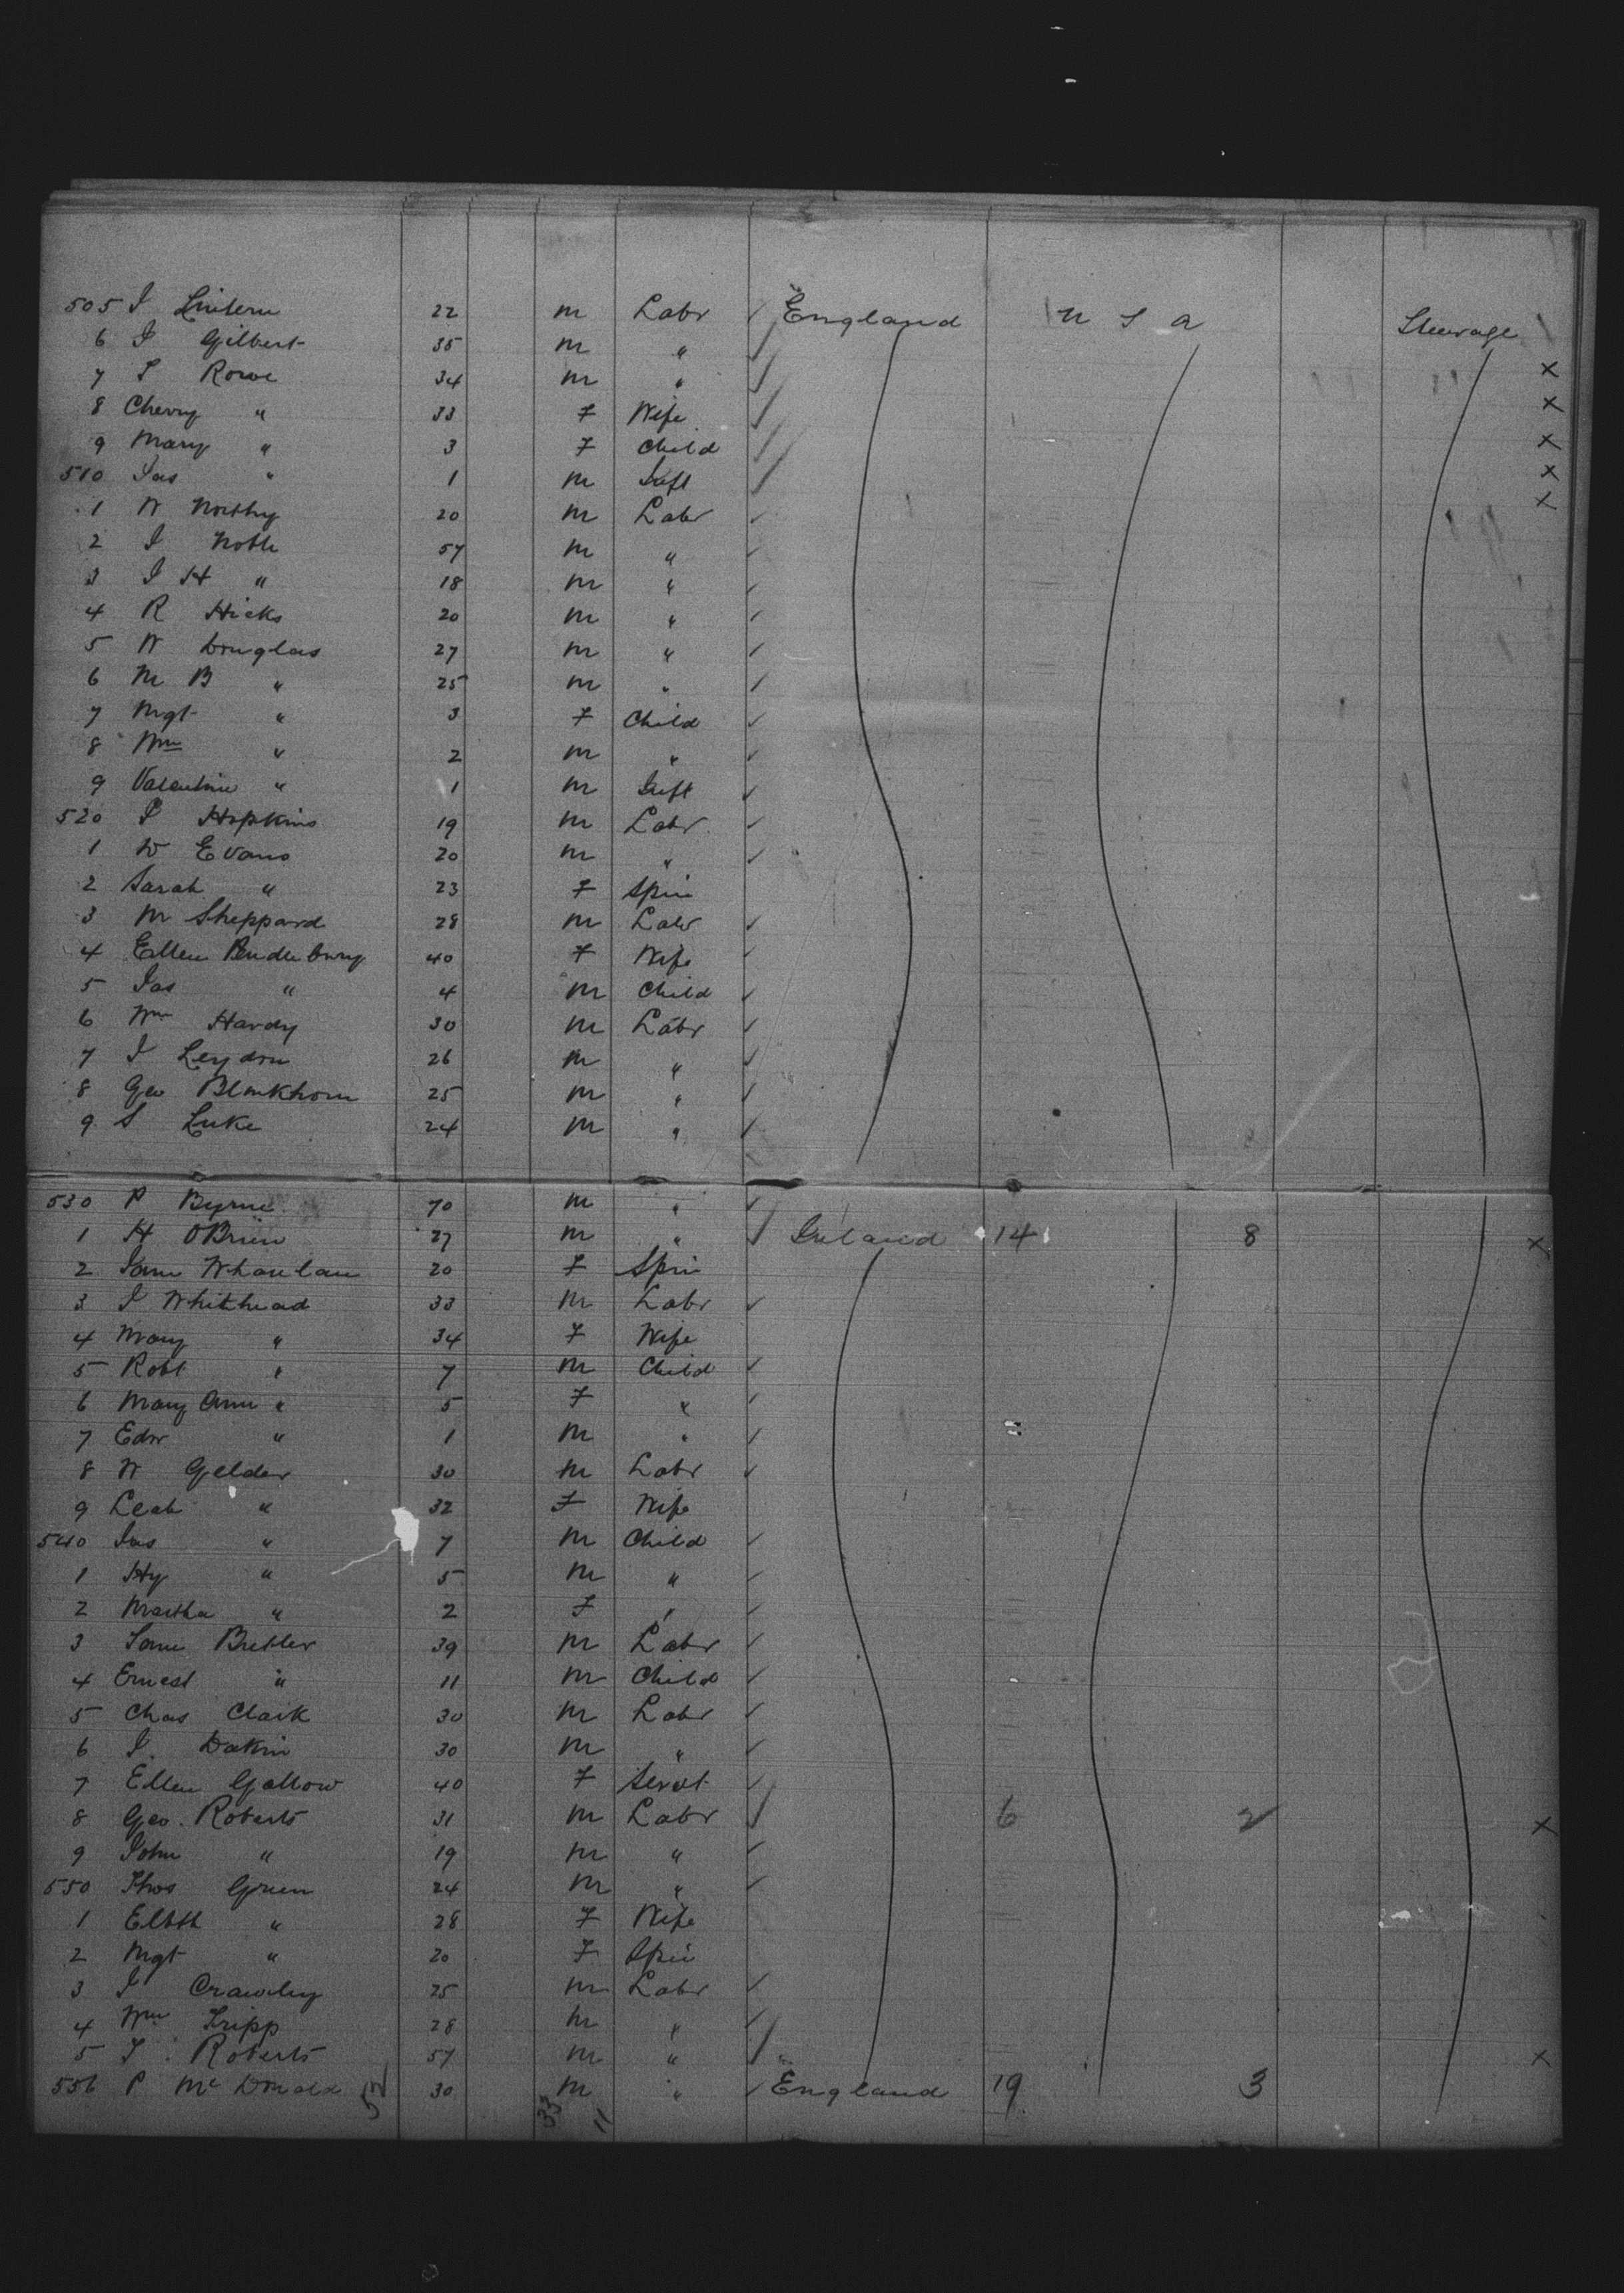 505 J Lintern 22 m Labr England U S A Steerage
6 J Gilbert 35 m "
7 T Rowe 34 m " x
8 Cherry " 33 F Wife x
9 Mary " 3 F Child x
510 Jas " 1 m Inft x
1 W Northy 20 m Labr x
2 J Noble 57 m "
3 J H " 18 m "
4 R Hicks 20 m "
5 W Douglas 27 m "
6 M B " 25 m "
7 Mgt " 3 F Child
8 Wm " 2 m "
9 Valentine " 1 m Inft
520 P Hopkins 19 m Labr
1 W Evans 20 m "
2 Sarah " 23 F Spin
3 M Sheppard 28 m Labr
4 Ellen 40 F Wife
5 Jas " 4 m Child
6 Wm Hardy 30 m Labr
7 J Leydon 26 m "
8 Geo Blinkhorn 25 m "
9 S Luke 24 m "
530 P Byrne 70 m "
1 H OBrien 27 m " Ireland 14 8 x
2 Whanlan 20 F Spin
3 J Whitehead 33 m Labr
4 Mary " 34 F Wife
5 Robt " 7 m Child
6 Mary Ann " 5 F "
7 Edw " 1 m "
8 W Gelder 30 m Labr
9 Leah " 32 F Wife
540 Jas " 7 m Child
1 Hy " 5 m "
2 Martha " 2 F "
3 Butler 39 m Labr
4 Ernest " 11 m Child
5 Chas Clark 30 m Labr
6 J. Dakin 30 m "
7 Ellen Gallow 40 F Servt
8 Geo. Roberts 31 m Labr 6 2 x
9 John " 19 m "
550 Thos Green 24 m "
1 Elbth " 28 F Wife
2 Mgt " 20 F Spin
3 J Crawley 25 m Labr
4 Wm Tripp 28 m "
5 T. Roberts 57 m " x
556 P McDonald 52 30 m " England 19 3
33 11